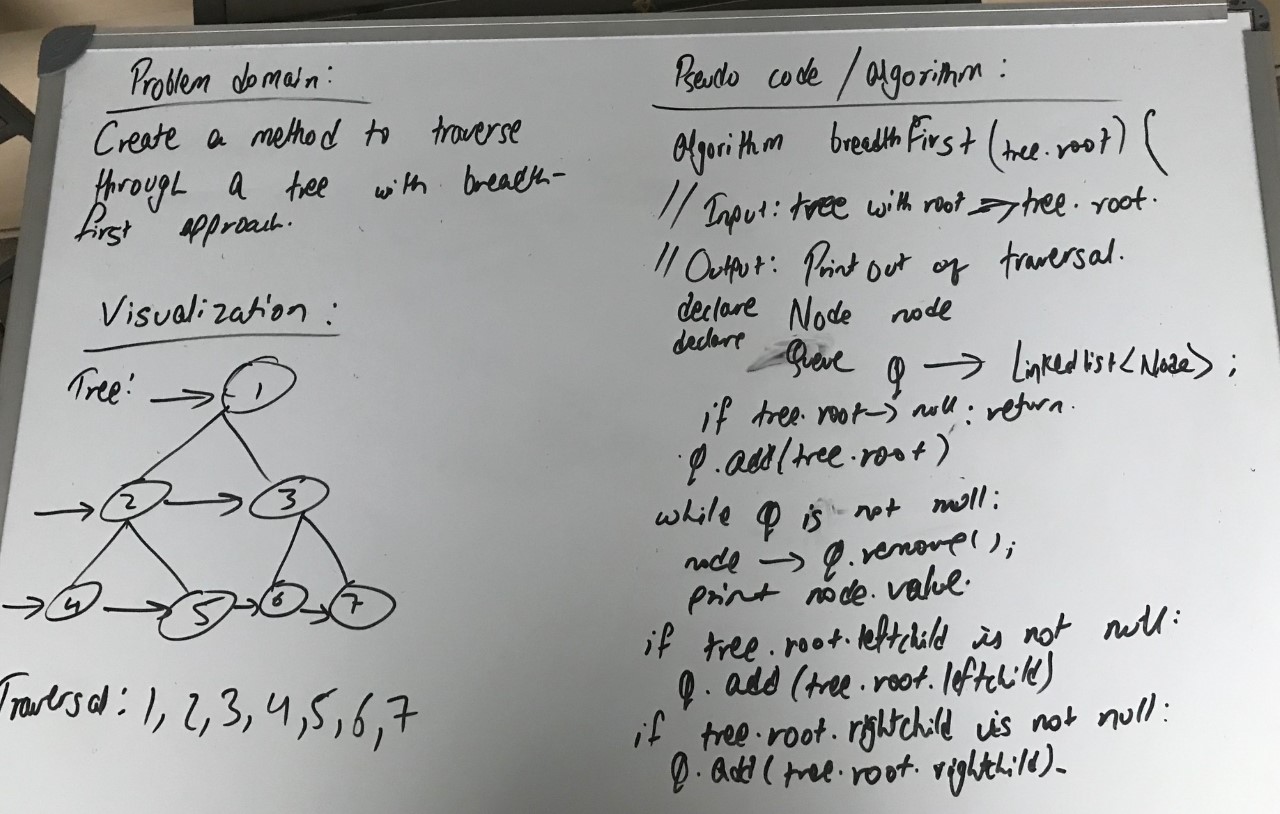 Problem domain:
Create a method to traverse
through a tree with breadth-
first approach.
Visualization:
Tree:
1
2 3
4 5 6 7
Traversal: 1, 2, 3, 4, 5, 6, 7
Pseudo code / Algorithm:
Algorithm breadthFirst (tree.root) {
// Input: tree with root → tree.root.
// Output: Print out of traversal.
declare Node node
declare Queue Q → Linkedlist<Node>;
if tree.root → null: return.
Q.add(tree.root)
while Q is not null:
node → Q.remove();
print node.value.
if tree.root.leftchild is not null:
Q.add(tree.root.leftchild)
if tree.root.rightchild is not null:
Q.add(tree.root.rightchild).